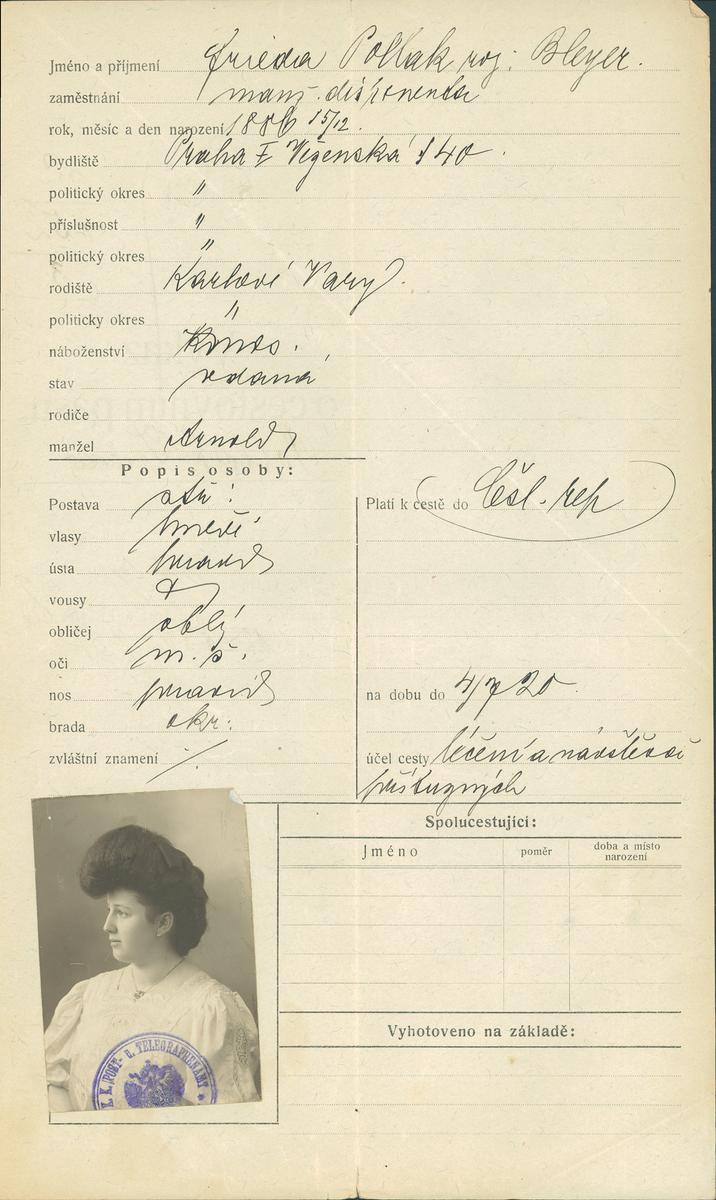 Jméno a příjmení Frieda Pollak roz: Bleyer.
zaměstnání manž. disponenta
rok, měsíc a den narození 1886 15/12.
bydliště Praha I Vězenská 140.
politický okres "
příslušnost "
politický okres "
rodiště Karlové Vary.
politicky okres "
náboženství
stav vdaná
rodiče
manžel Arnold
Popis osoby:
Postava stř:
vlasy hnědé
ústa pravid
vousy
obličej oblý
oči m. š.
nos pravid
brada okr:
zvláštní znamení ⁒
Platí k cestě do Čsl. rep
na dobu do 4/7 20.
účel cesty léčení a návštěva
příbuzných
Spolucestující:
Jméno poměr doba a místo
narození
Vyhotoveno na základě:
K. K. POST- U. TELEGRAPHENAMT *